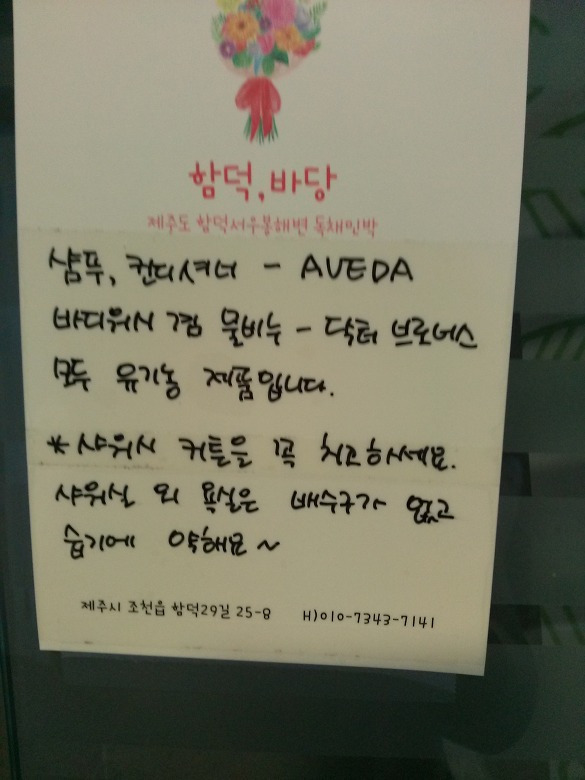 함덕, 바당
제주도 함덕서우봉해변 독채민박
샴푸, 컨디셔너 - AVEDA
바디워시 겸 물비누 - 닥터 브로너스
모두 유기농 제품입니다.
* 샤워시 커튼을 꼭 치고하세요.
샤워실 외 욕실은 배수구가 없고
습기에 약해요~
제주시 조천읍 함덕29길 25-8 H)010-7343-7141